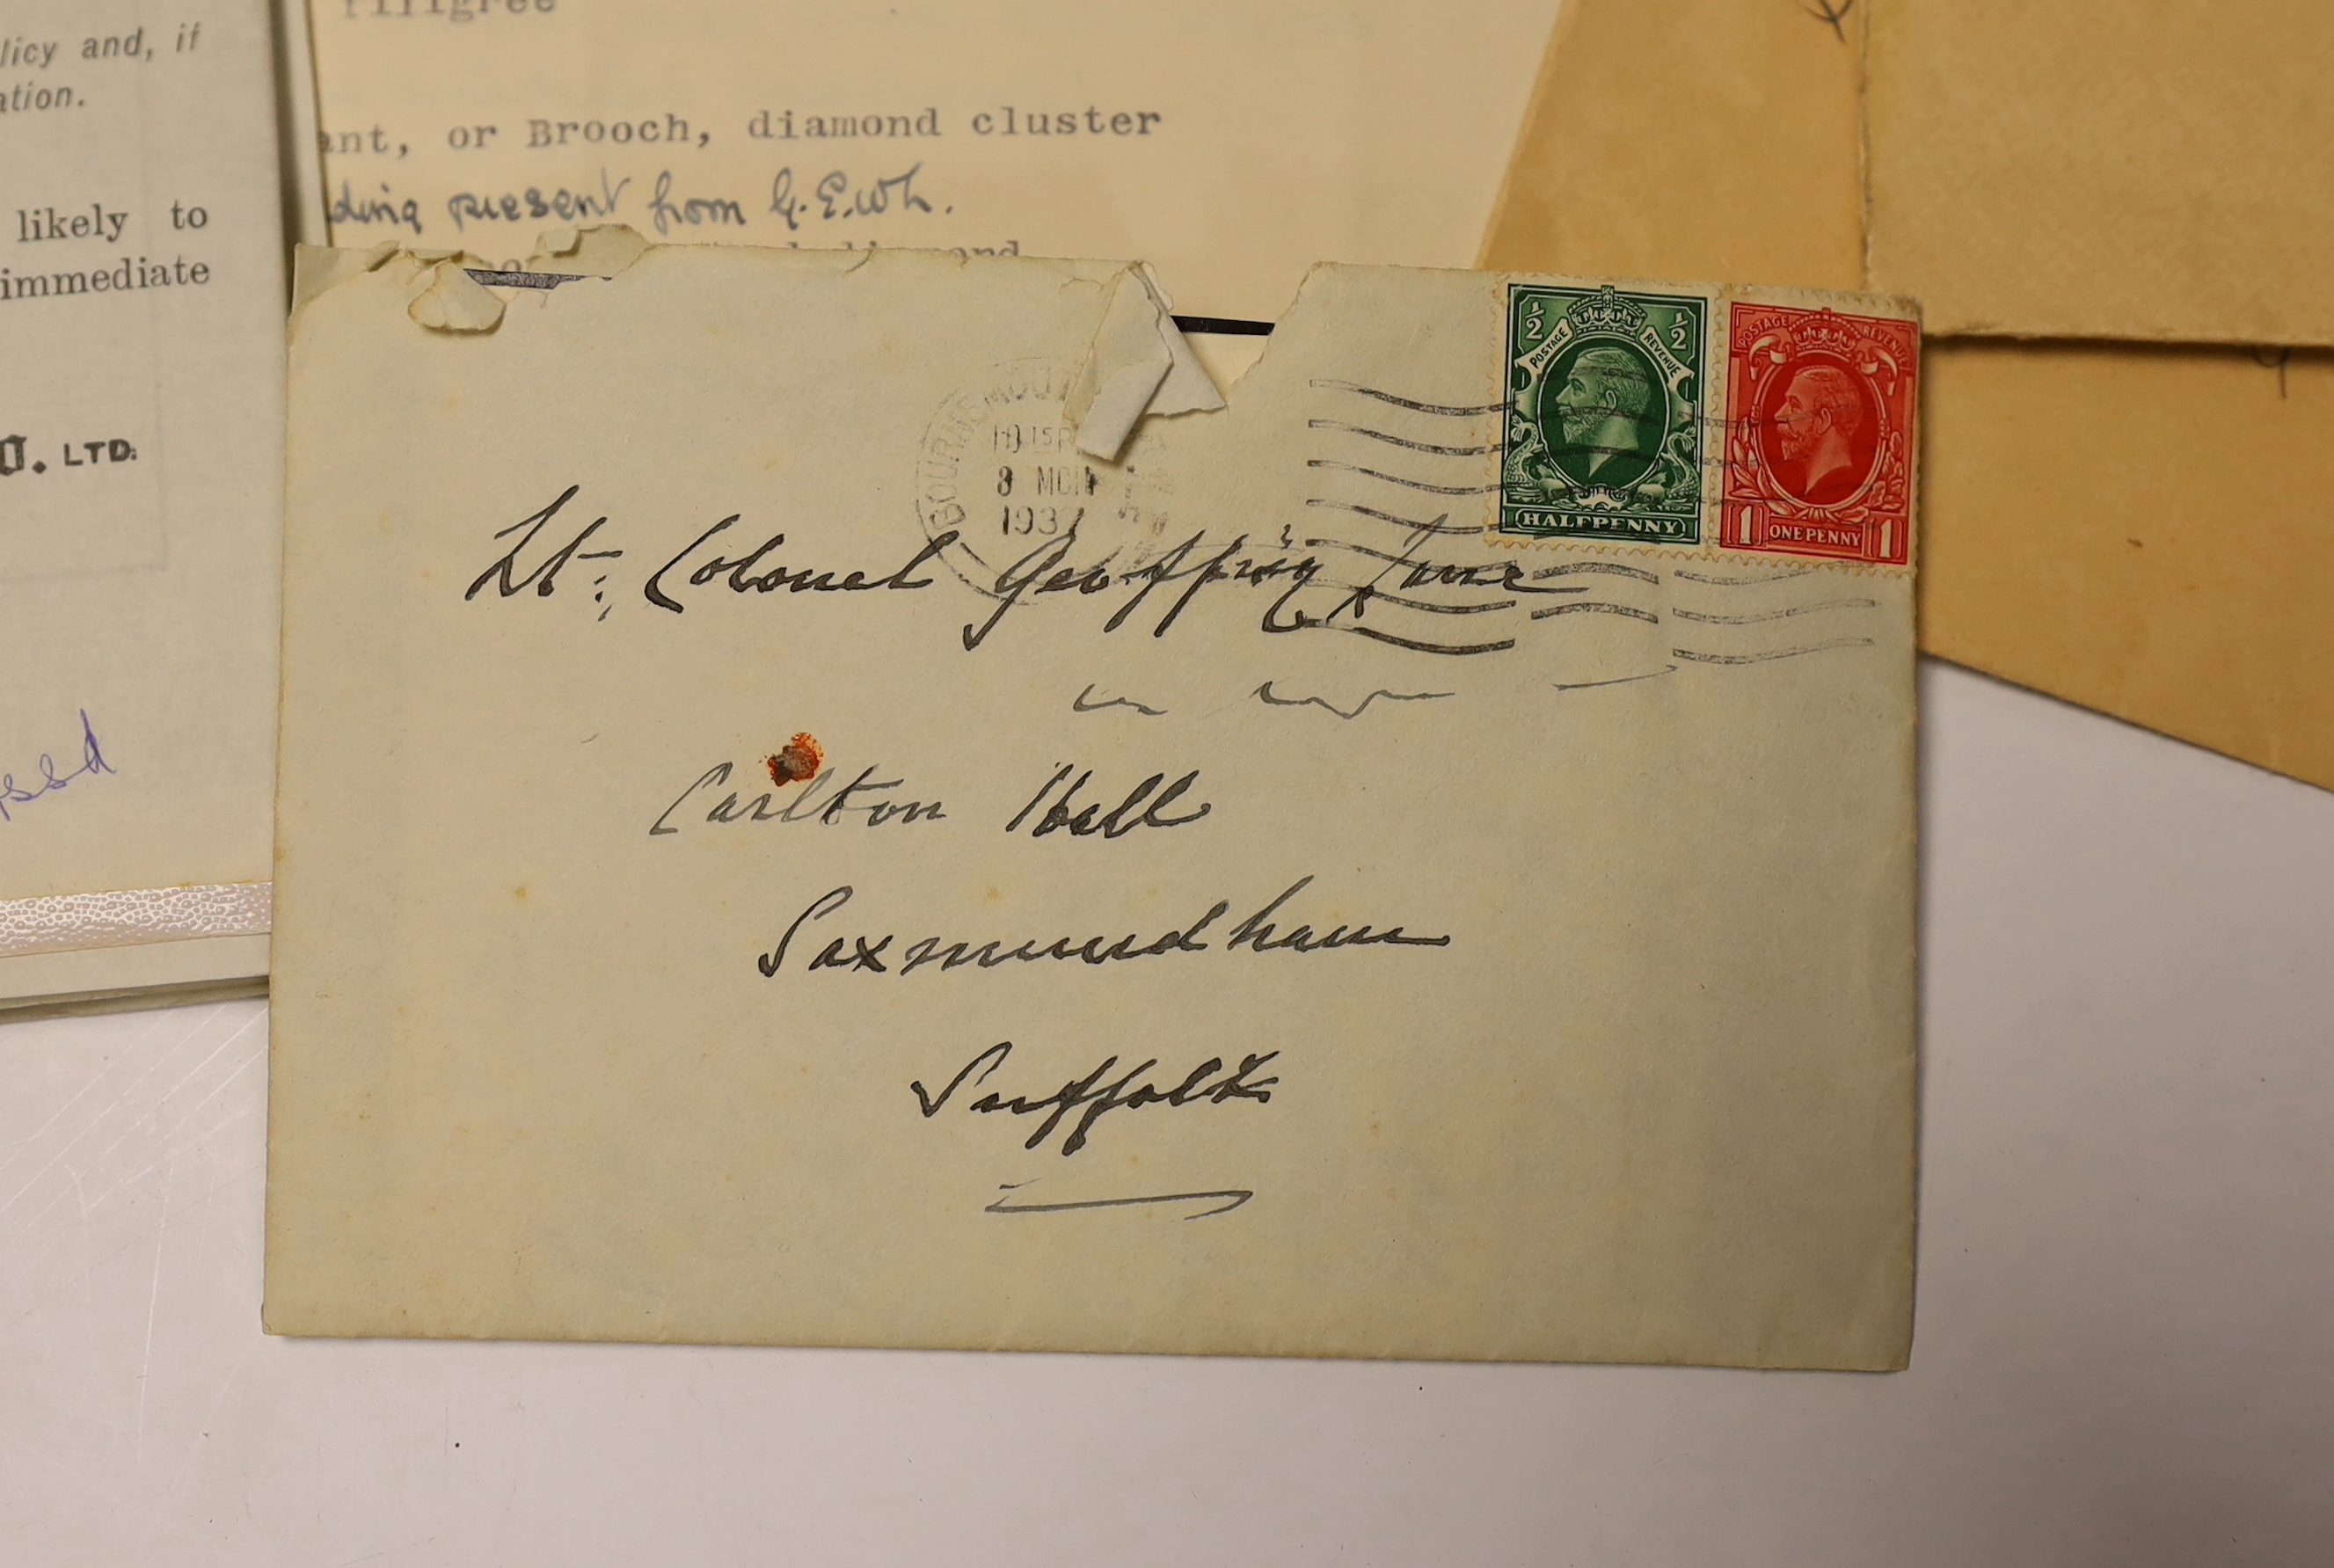 licy and, if
ation.
likely to
immediate
O. LTD.
ssd
filigree
ant, or Brooch, diamond cluster
ding present from G.E.W.L.
diamond
BOURNEMOUTH
10 15 P
8 MCH
1937
½ ½
POSTAGE REVENUE
HALFPENNY
POSTAGE REVENUE
1 ONE PENNY 1
Lt: Colonel Geoffrey Lane
Carlton Hall
Saxmundham
Suffolk